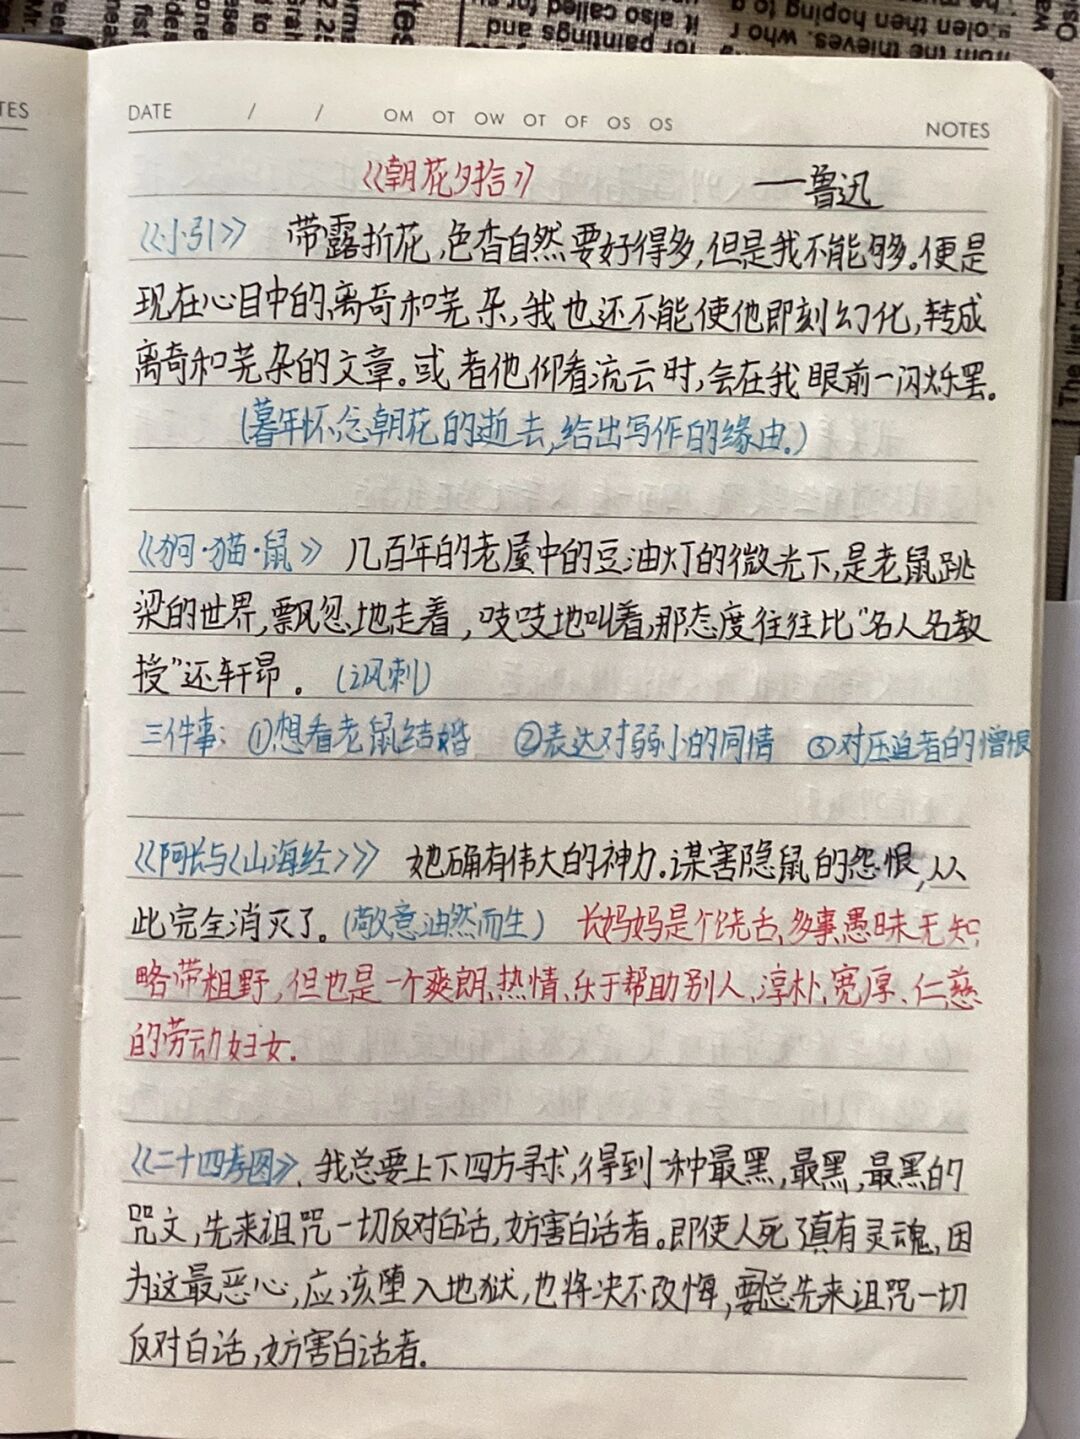 DATE / / OM OT OW OT OF OS OS NOTES
《朝花夕拾》 ——鲁迅
《小引》 带露折花,色杳自然要好得多,但是我不能够。便是
现在心目中的离奇和芜杂,我也还不能使他即刻幻化,转成
离奇和芜杂的文章。或者他仰看流云时,会在我眼前一闪烁罢。
(暮年怀念朝花的逝去,给出写作的缘由。)
《狗·猫·鼠》 几百年的老屋中的豆油灯的微光下,是老鼠跳
梁的世界,飘忽地走着,吱吱地叫着,那态度往往比“名人名教
授”还轩昂。 (讽刺)
三件事: ①想看老鼠结婚 ②表达对弱小的同情 ③对压迫者的憎恨
《阿长与〈山海经〉》 她确有伟大的神力。谋害隐鼠的怨恨,从
此完全消灭了。(敬意油然而生) 长妈妈是个饶舌、多事、愚昧无知
略带粗野,但也是一个爽朗、热情、乐于帮助别人、淳朴、宽厚、仁慈
的劳动妇女。
《二十四孝图》 我总要上下四方寻求,得到一种最黑,最黑,最黑的
咒文,先来诅咒一切反对白话,妨害白话者。即使人死了真有灵魂,因
为这最恶心,应该堕入地狱,也将决不改悔,要总先来诅咒一切
反对白话,妨害白话者。